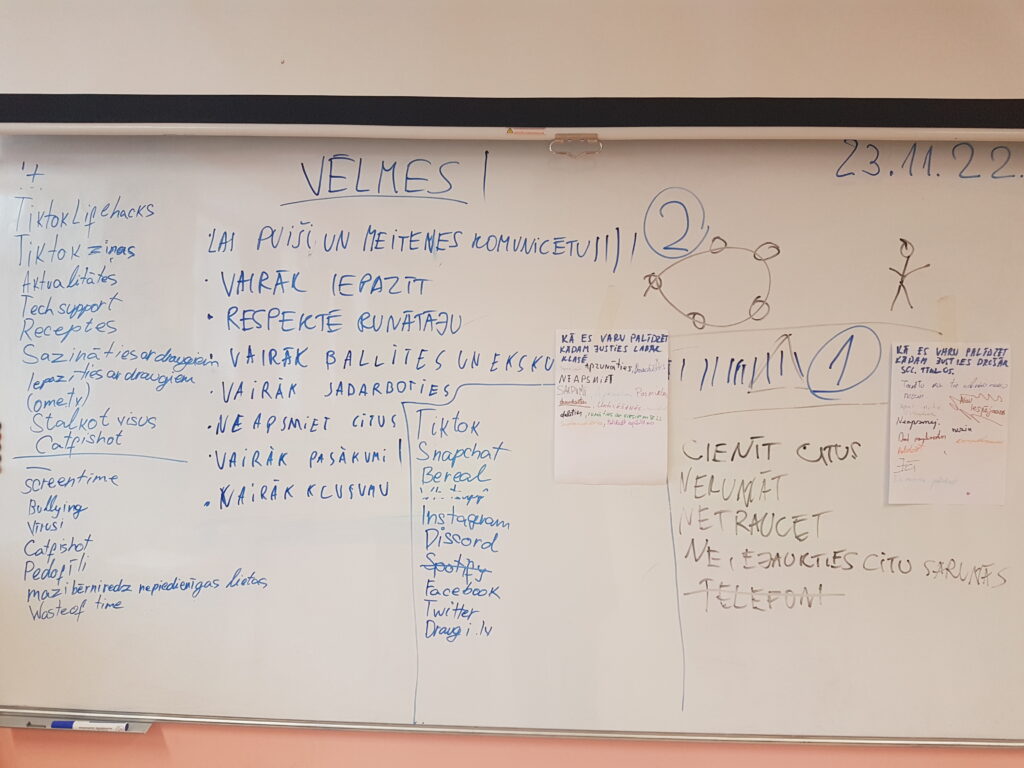 23.11.22.
VĒLMES
+
Tiktok Lifehacks
Tiktok ziņas
Aktualitātes
Tech support
Receptes
Sazināties ar draugiem
Iepazīties ar draugiem
(ome.tv)
Stalkot visus
Catfishot
–
Screentime
Bullying
Vīrusi
Catfishot
Pedofīli
mazi bērni redz nepiedienīgas lietas
Waste of time
LAI PUIŠI UN MEITENES KOMUNICĒTU
2
• VAIRĀK IEPAZĪT
• RESPEKTĒ RUNĀTĀJU
• VAIRĀK BALLĪTES UN EKSKU
• VAIRĀK SADARBOTIES
• NEAPSMIET CITUS
• VAIRĀK PASĀKUMI
• VAIRĀK KLUSUMU
Tiktok
Snapchat
Bereal
Instagram
Discord
Spotify
Facebook
Twitter
Draugi.lv
KĀ ES VARU PALĪDZĒT
KĀDAM JUSTIES LABĀK
KLASĒ
NEAPSMIET
1
CIENĪT CITUS
NERUNĀT
NETRAUCĒT
NEIEJAUKTIES CITU SARUNĀS
TELEFONI
KĀ ES VARU PALĪDZĒT
KĀDAM JUSTIES DROŠĀK
SOC. TĪKLOS.